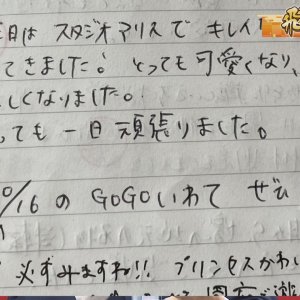 日は スタジオアリスで キレイ
てきました。 とっても可愛くなり、
しくなりました。
ても 一日頑張りました。
/16 の GOGOいわて ぜひ
必ずみますね!! プリンセスかわい